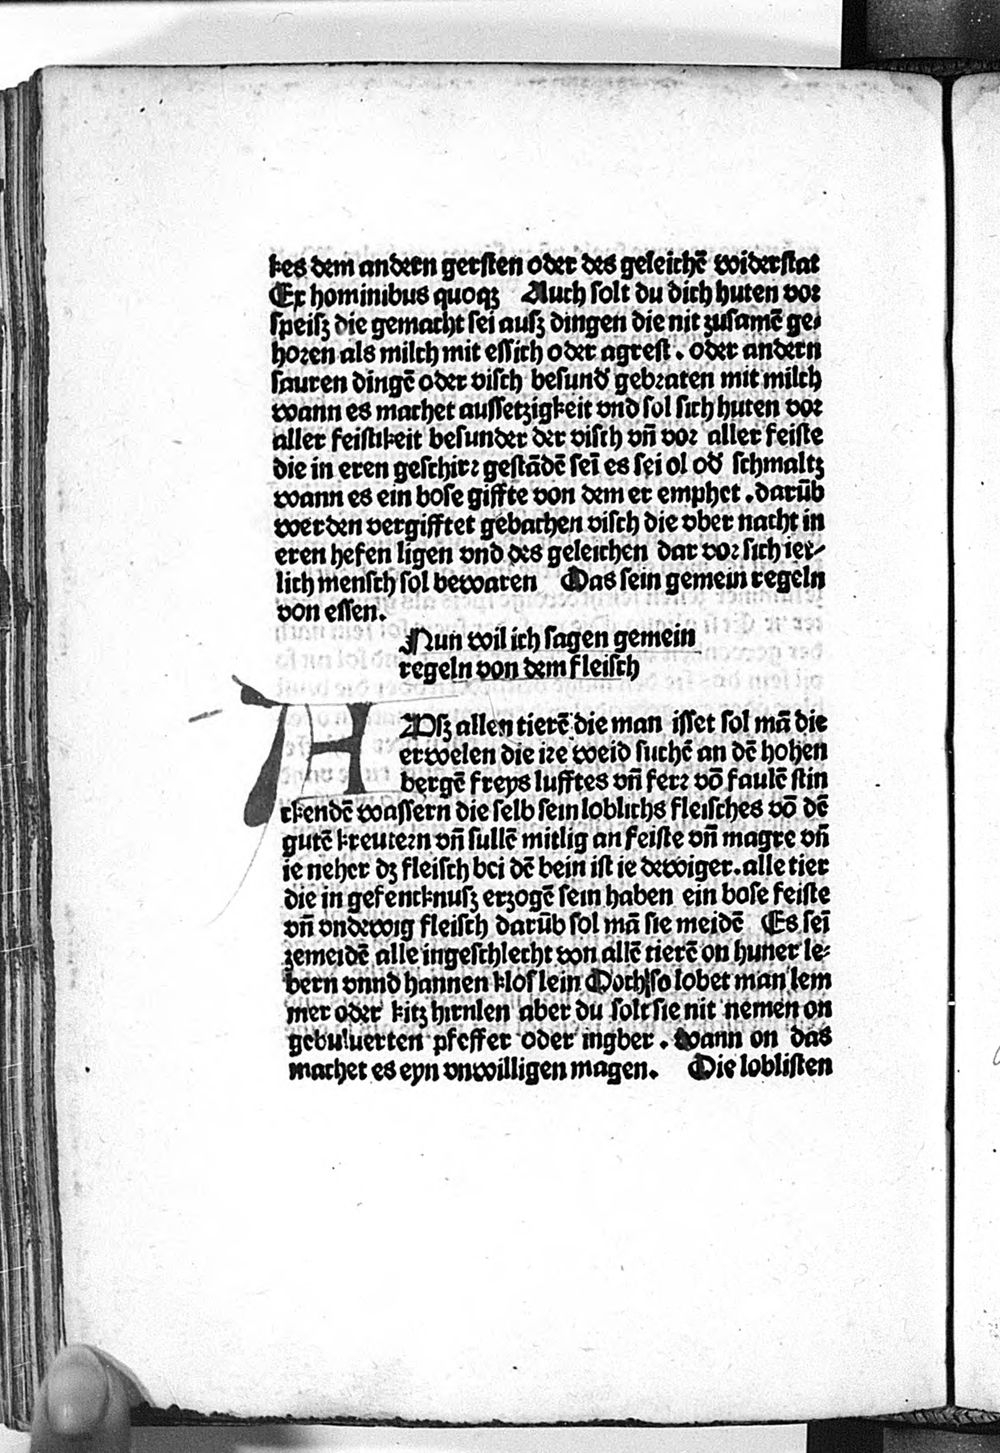 kes dem andern gersten oder des geleichē widerstat
Ex hominibus quoqꝫ Auch solt du dich huten vor
speisz die gemacht sei ausz dingen die nit zusamē ge-
horen als milch mit essich oder agrest . oder andern
sauren dingē oder visch besund̄ gebraten mit milch
wann es machet aussetzigkeit vnd sol sich huten vor
aller feistikeit besunder der visch vn̄ vor aller feiste
die in eren geschirr gestādē sei es sei ol od̄ schmaltz
wann es ein bose giffte von dem er emphet . darūb
werden vergifftet gebachen visch die vber nacht in
eren hefen ligen vnd des geleichen dar vor sich iet-
lich mensch sol bewaren Das sein gemein regeln
von essen.
Nun wil ich sagen gemein
regeln von dem fleisch
AVsz allen tierē die man isset sol mā die
erwelen die ire weid suchē an dē hohen
bergē freys lufftes vn̄ ferr vō faulē stin
ckendē wassern die selb sein loblichs fleisches vō dē
gutē kreutern vn̄ sullē mitlig an feiste vn̄ magre vn̄
ie neher dz fleisch bei dē bein ist ie dewiger . alle tier
die in gefencknusz erzogē sein haben ein bose feiste
vn̄ vndewig fleisch darūb sol mā sie meidē Es sei
zemeidē alle ingeschlecht von allē tierē on huner le-
bern vnnd hannen kloslein Doch so lobet man lem
mer oder kitz hirnlen aber du solt sie nit nemen on
gebuluerten pfeffer oder ingber . wann on das
machet es eyn vnwilligen magen . Die loblisten